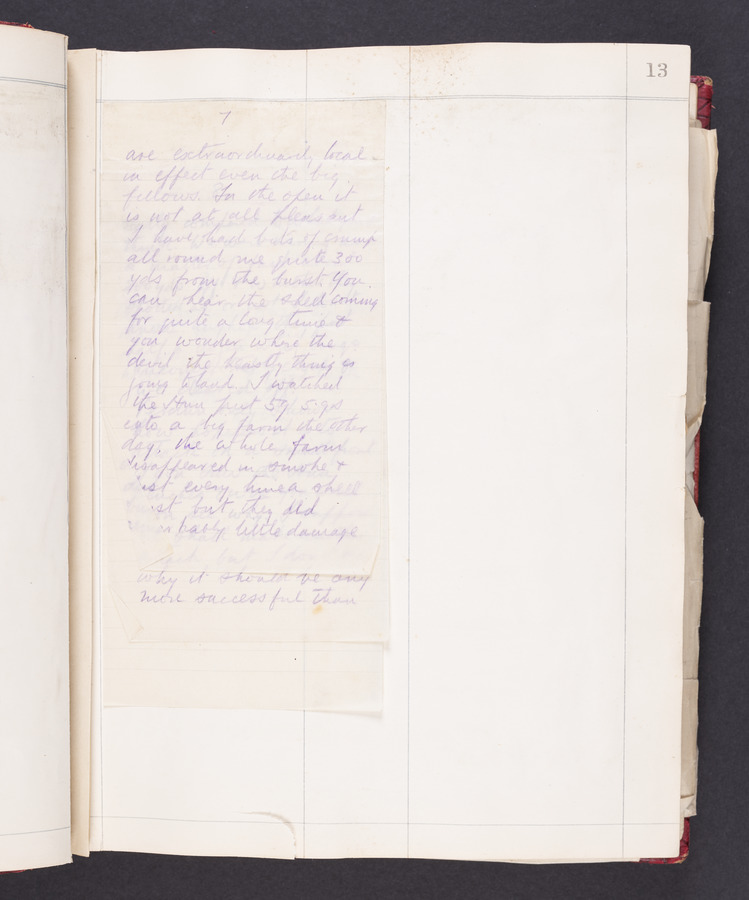 13
7
are extraordinarily local
in effect even the big
fellows. In the open it
is not at all pleasant
I have had bits of crump
all round me quite 300
yds from the burst. You
can hear the shell coming
for quite a long time &
you wonder where the
devil the beastly thing is
going to land. I watched
the Hun put 50 5.9s
into a big farm the other
day, the whole farm
disappeared in smoke &
dust every time a shell
burst but they did
little damage
why it should be any
more successful than